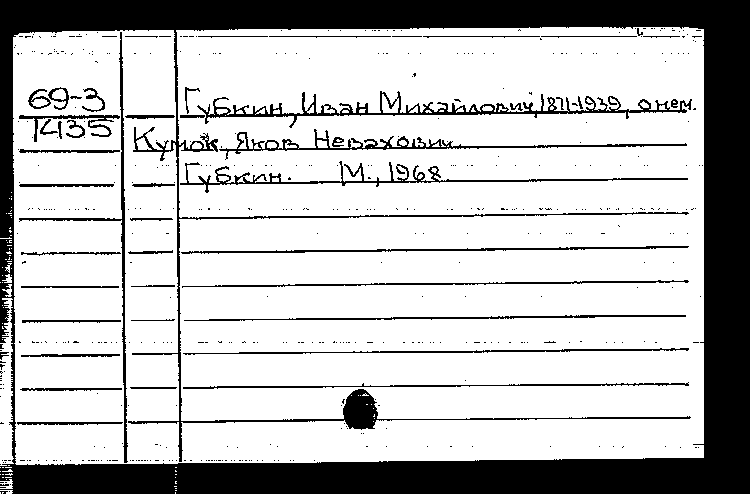 69-3
Губкин, Иван Михайлович, 1871-1939, о нем.
1435
Кумок, Яков Невахович
Губкин. М., 1968